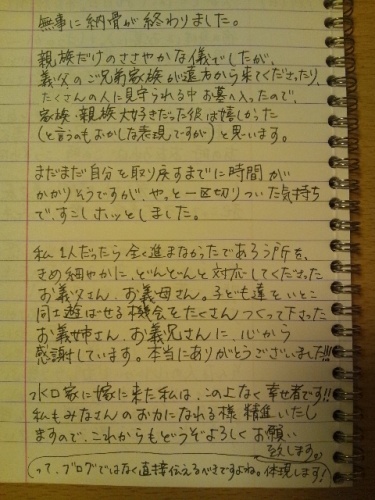 無事に納骨が終わりました。
親族だけのささやかな儀でしたが、
義父のご兄弟家族が遠方から来てくださったり、
たくさんの人に見守られる中お墓へ入ったので、
家族・親族大好きだった彼は嬉しかった
(と言うのもおかしな表現ですが)と思います。
まだまだ自分を取り戻すまでに時間が
かかりそうですが、やっと一区切りついた気持ち
で、すこしホッとしました。
私1人だったら全く進まなかったであろう所を、
きめ細やかに、どんどんと対応してくださった
お義父さん、お義母さん。子ども達をいとこ
同士遊ばせる機会をたくさんつくって下さった
お義姉さん、お義兄さんに、心から
感謝しています。本当にありがとうございました!!!
水口家に嫁に来た私は、この上なく幸せ者です!!
私もみなさんのお力になれる様精進いたし
ますので、これからもどうぞよろしくお願い
致します。
(って、ブログではなく直接伝えるべきですよね。体現します!)